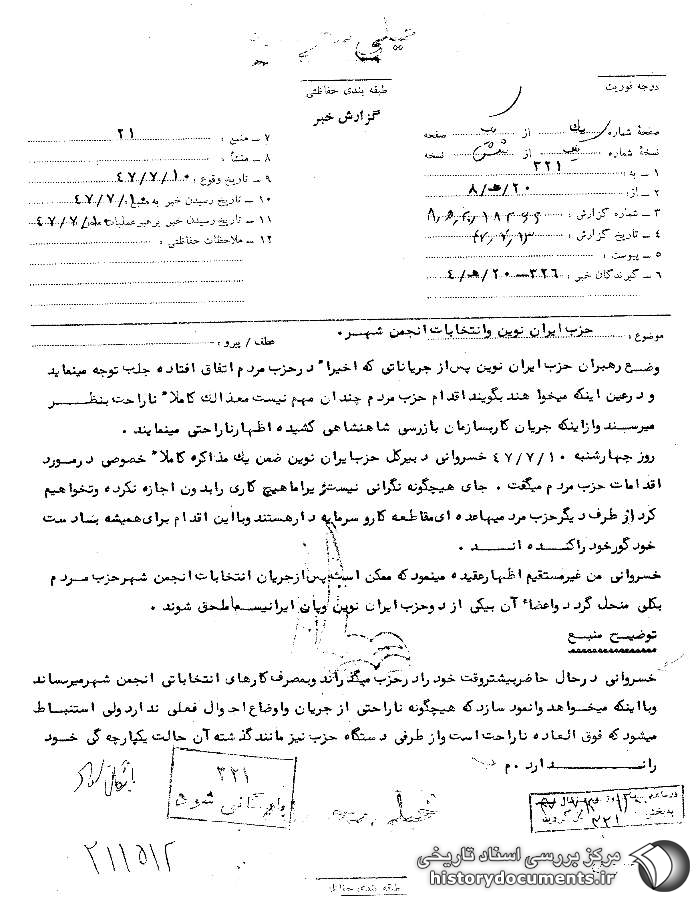 خیلی
طبقه بندی حفاظتی
درجه فوریت
گزارش خبر
صفحهٔ شماره یک از یک صفحه
نسخهٔ شماره یک از شش نسخه
۱ ـ به : ۳۲۱
۲ ـ از : ۲۰/هـ/۸
۳ ـ شماره گزارش :
۴ ـ تاریخ گزارش : ۴۷/۷/۱۳
۵ ـ پیوست :
۶ ـ گیرندگان خبر : ۳۲۶ـ ۲۰/هـ/۴
۷ ـ منبع : ۲۱
۸ ـ منشأ :
۹ ـ تاریخ وقوع : ۴۷/۷/۱۰
۱۰ ـ تاریخ رسیدن خبر به منبع : ۴۷/۷/۱۰
۱۱ ـ تاریخ رسیدن خبر برهبر عملیات ۴۷/۷/
۱۲ ـ ملاحظات حفاظتی :
موضوع : حزب ایران نوین وانتخابات انجمن شهر۰
عطف / پیرو :
وضع رهبران حزب ایران نوین پس از جریاناتی که اخیرا" درحزب مردم اتفاق افتاده جلب توجه مینماید
و درعین اینکه میخواهند بگویند اقدام حزب مردم چندان مهم نیست معذالک کاملا" ناراحت بنظر
میرسند وازاینکه جریان کاربسازمان بازرسی شاهنشاهی کشیده اظهارناراحتی مینمایند ۰
روز چهارشنبه ۴۷/۷/۱۰ خسروانی دبیرکل حزب ایران نوین ضمن یک مذاکره کاملا" خصوصی درمورد
اقدامات حزب مردم میگفت ۰ جای هیچگونه نگرانی نیست زیراما هیچ کاری رابدون اجازه نکرده ونخواهیم
کرد از طرف دیگر حزب مردمیها عده ای مقاطعه کار و سرمایه دار هستند وبااین اقدام برای همیشه بنادست
خود گور خود را کنده انـد ۰
خسروانی من غیرمستقیم اظهارعقیده مینمود که ممکن است پس ازجریان انتخابات انجمن شهرحزب مردم
بکلی منحل گردد واعضاء آن بیکی از دوحزب ایران نوین وپان ایرانیسم ملحق شوند ۰
توضیح منبع
خسروانی درحال حاضربیشتروقت خود رادرحزب میگذراند وبمصرف کارهای انتخاباتی انجمن شهرمیرساند
وبااینکه میخواهد وانمود سازد که هیچگونه ناراحتی از جریان واوضاع احوال فعلی ندارد ولی استنباط
میشود که فوق العاده ناراحت است واز طرفی دستگاه حزب نیز مانند گذشته آن حالت یکپارچه گی خود
را ندارد ۰م
۳۲۱
بایگانی شود
۲۱۱۵۱۲
۳۲۱
طبقه بندی حفاظتی
مرکز بررسی اسناد تاریخی
historydocuments.ir